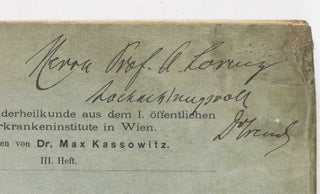 Herrn Prof. A. Lorenz
hochachtungsvoll
derheilkunde aus dem I. öffentlichen
rkrankeninstitute in Wien.
en von Dr. Max Kassowitz.
III. Heft.